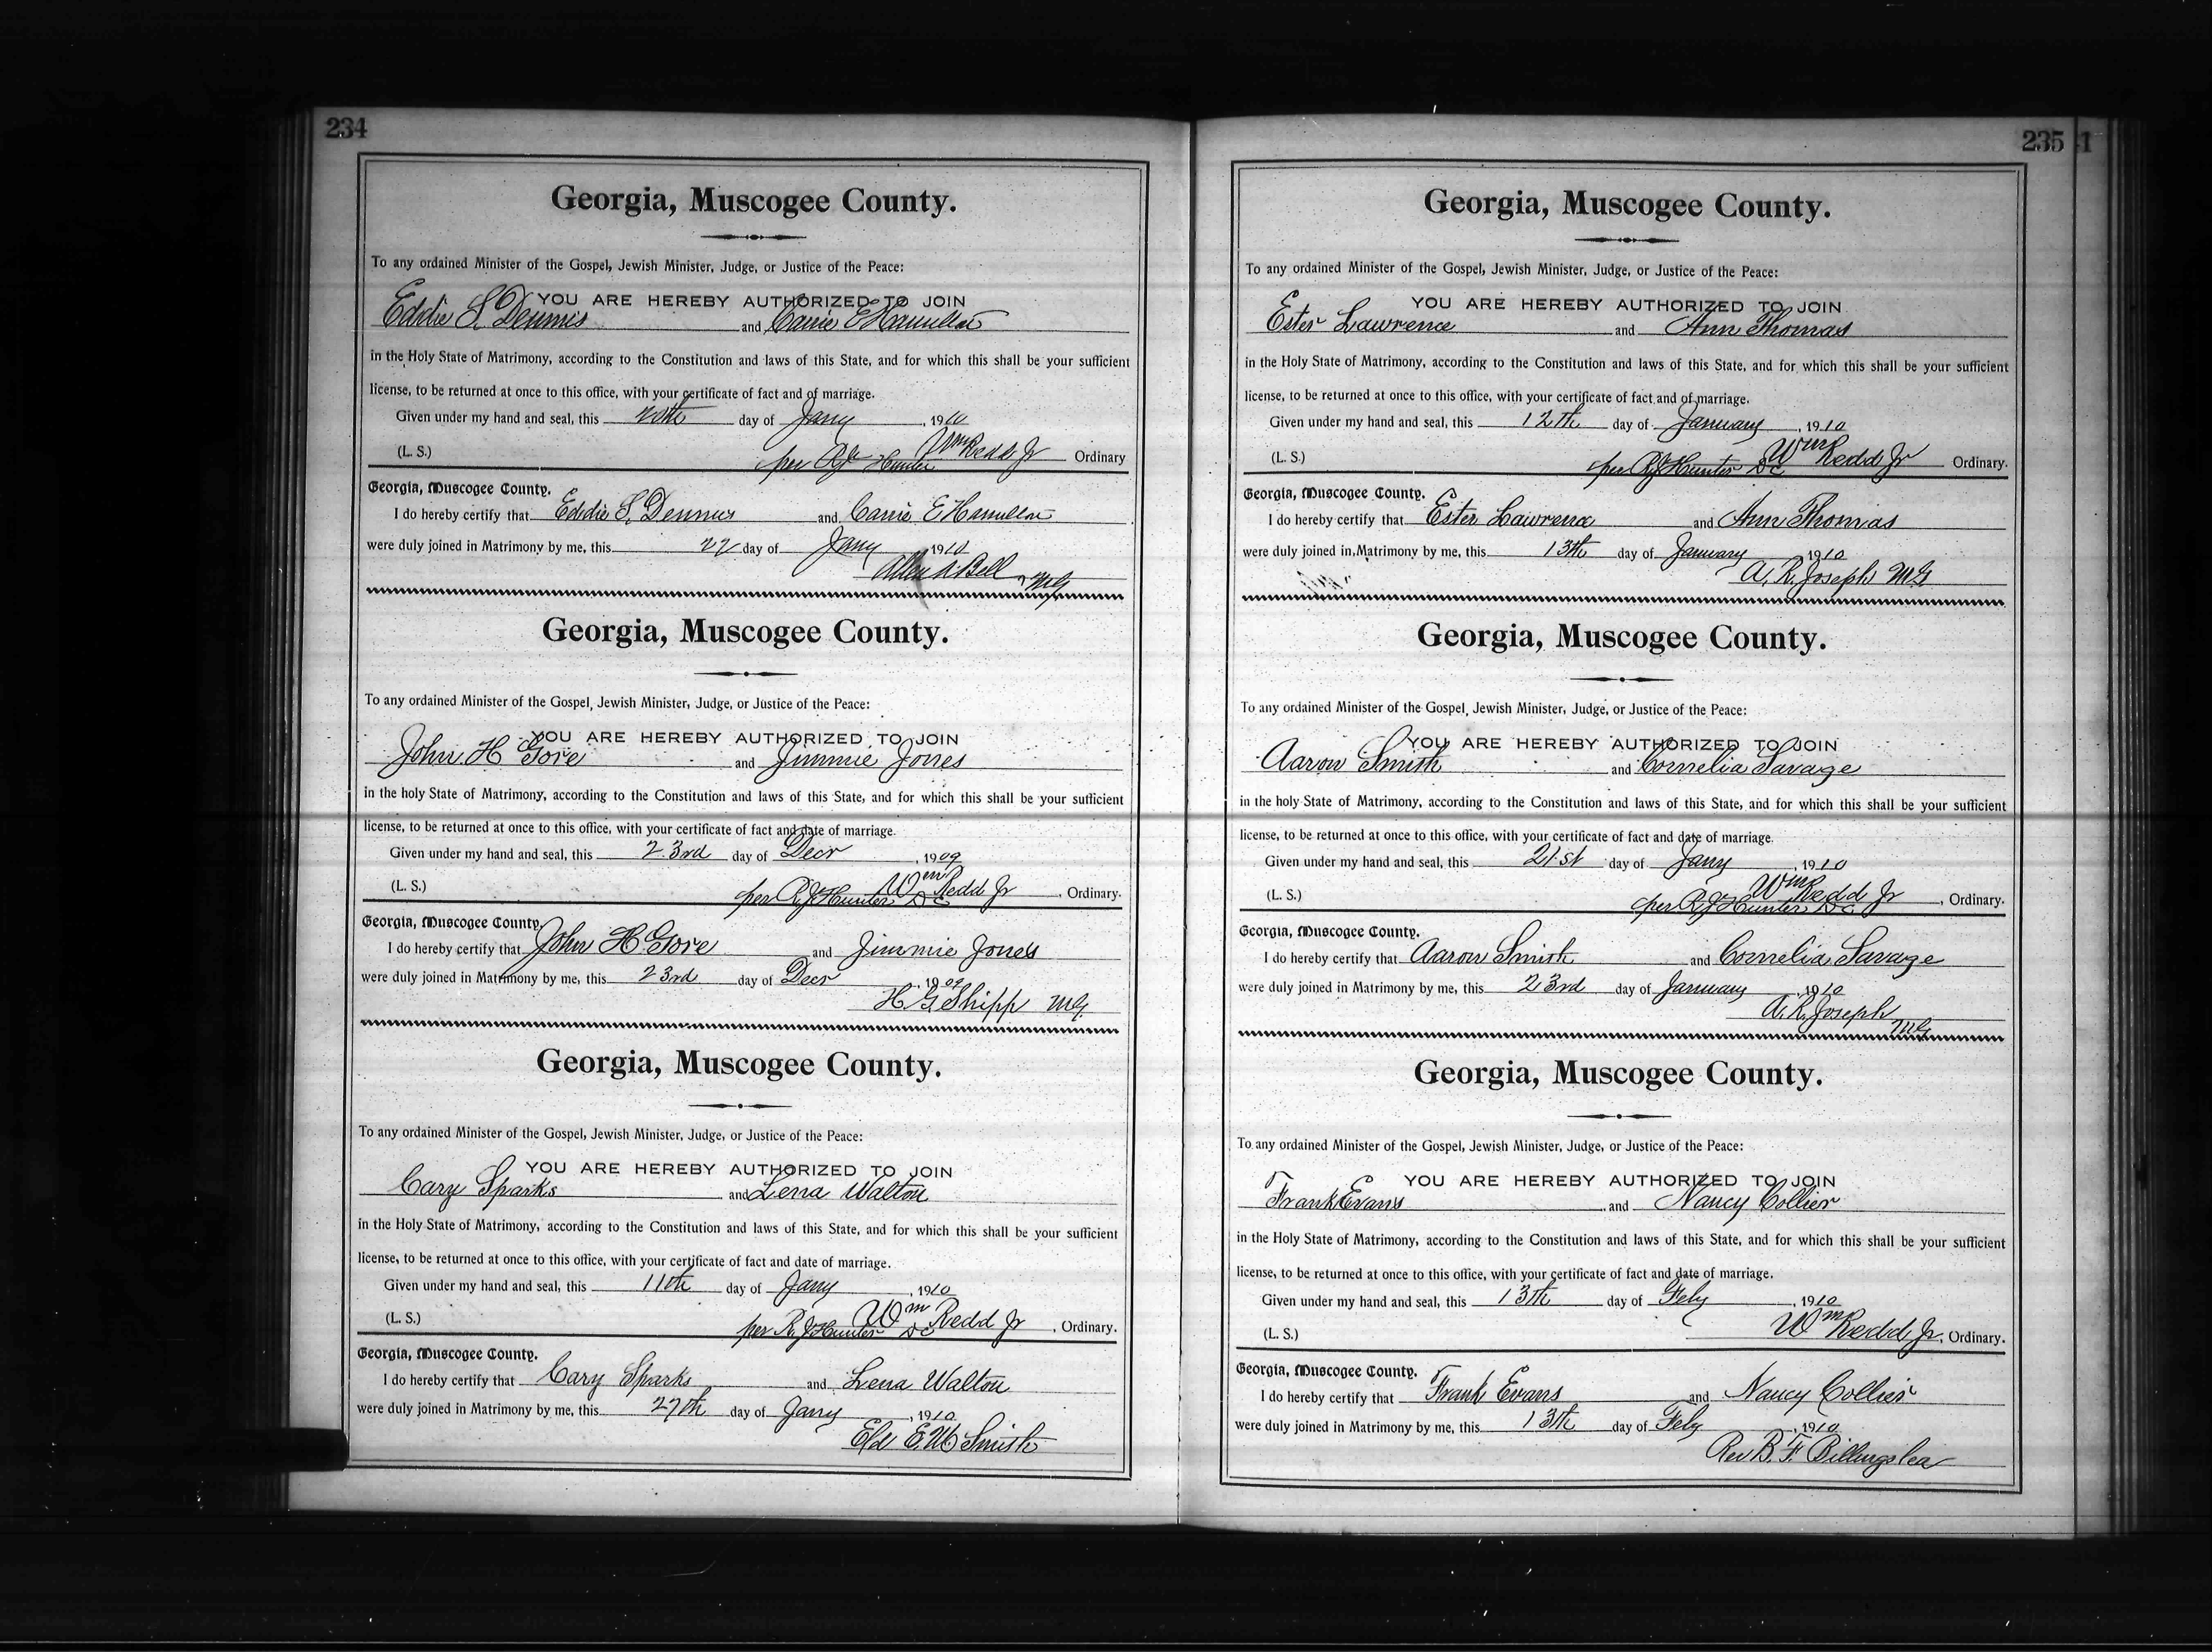 234
Georgia, Muscogee County.
To any ordained Minister of the Gospel, Jewish Minister, Judge, or Justice of the Peace:
YOU ARE HEREBY AUTHORIZED TO JOIN
Eddie S. Dennis and Carrie E Hamilton
in the Holy State of Matrimony, according to the Constitution and laws of this State, and for which this shall be your sufficient
license, to be returned at once to this office, with your certificate of fact and of marriage.
Given under my hand and seal, this 20th day of Jany, 1910
(L. S.) Wm Redd Jr Ordinary
per RJ Hunter
Georgia, Muscogee County.
I do hereby certify that Eddie S. Dennis and Carrie E Hamilton
were duly joined in Matrimony by me, this 22 day of Jany 1910
Bell MG
Georgia, Muscogee County.
To any ordained Minister of the Gospel, Jewish Minister, Judge, or Justice of the Peace:
YOU ARE HEREBY AUTHORIZED TO JOIN
John H Gore and Jimmie Jones
in the holy State of Matrimony, according to the Constitution and laws of this State, and for which this shall be your sufficient
license, to be returned at once to this office, with your certificate of fact and date of marriage.
Given under my hand and seal, this 23rd day of Decr, 1909
(L. S.) Wm Redd Jr, Ordinary.
per R.J Hunter DC
Georgia, Muscogee County.
I do hereby certify that John H. Gore and Jimmie Jones
were duly joined in Matrimony by me, this 23rd day of Decr, 1909
H G Shipp MG.
Georgia, Muscogee County.
To any ordained Minister of the Gospel, Jewish Minister, Judge, or Justice of the Peace:
YOU ARE HEREBY AUTHORIZED TO JOIN
Cary Sparks and Lena Walton
in the Holy State of Matrimony, according to the Constitution and laws of this State, and for which this shall be your sufficient
license, to be returned at once to this office, with your certificate of fact and date of marriage.
Given under my hand and seal, this 11th day of Jany, 1910
(L. S.) Wm Redd Jr, Ordinary.
per R. J Hunter DC
Georgia, Muscogee County.
I do hereby certify that Cary Sparks and Lena Walton
were duly joined in Matrimony by me, this 27th day of Jany, 1910
Eld E.W Smith
235 1
Georgia, Muscogee County.
To any ordained Minister of the Gospel, Jewish Minister, Judge, or Justice of the Peace:
YOU ARE HEREBY AUTHORIZED TO JOIN
Ester Lawrence and Ann Thomas
in the Holy State of Matrimony, according to the Constitution and laws of this State, and for which this shall be your sufficient
license, to be returned at once to this office, with your certificate of fact and of marriage.
Given under my hand and seal, this 12th day of January, 1910
(L. S.) Wm Redd Jr Ordinary.
per RJ Hunter DC
Georgia, Muscogee County.
I do hereby certify that Ester Lawrence and Ann Thomas
were duly joined in Matrimony by me, this 13th day of January, 1910
A. R. Joseph MG
Georgia, Muscogee County.
To any ordained Minister of the Gospel, Jewish Minister, Judge, or Justice of the Peace:
YOU ARE HEREBY AUTHORIZED TO JOIN
Aaron Smith and Cornelia Savage
in the holy State of Matrimony, according to the Constitution and laws of this State, and for which this shall be your sufficient
license, to be returned at once to this office, with your certificate of fact and date of marriage.
Given under my hand and seal, this 21st day of Jany, 1910
(L. S.) Wm Redd Jr, Ordinary.
per RJ Hunter DC
Georgia, Muscogee County.
I do hereby certify that Aaron Smith and Cornelia Savage
were duly joined in Matrimony by me, this 23rd day of January, 1910
A. R. Joseph
MG
Georgia, Muscogee County.
To any ordained Minister of the Gospel, Jewish Minister, Judge, or Justice of the Peace:
YOU ARE HEREBY AUTHORIZED TO JOIN
Frank Evans and Nancy Collier
in the Holy State of Matrimony, according to the Constitution and laws of this State, and for which this shall be your sufficient
license, to be returned at once to this office, with your certificate of fact and date of marriage.
Given under my hand and seal, this 13th day of Feby, 1910
(L. S.) Wm Redd Jr, Ordinary.
Georgia, Muscogee County.
I do hereby certify that Frank Evans and Nancy Collier
were duly joined in Matrimony by me, this 13th day of Feby, 1910
Rev B. F. Billingslea